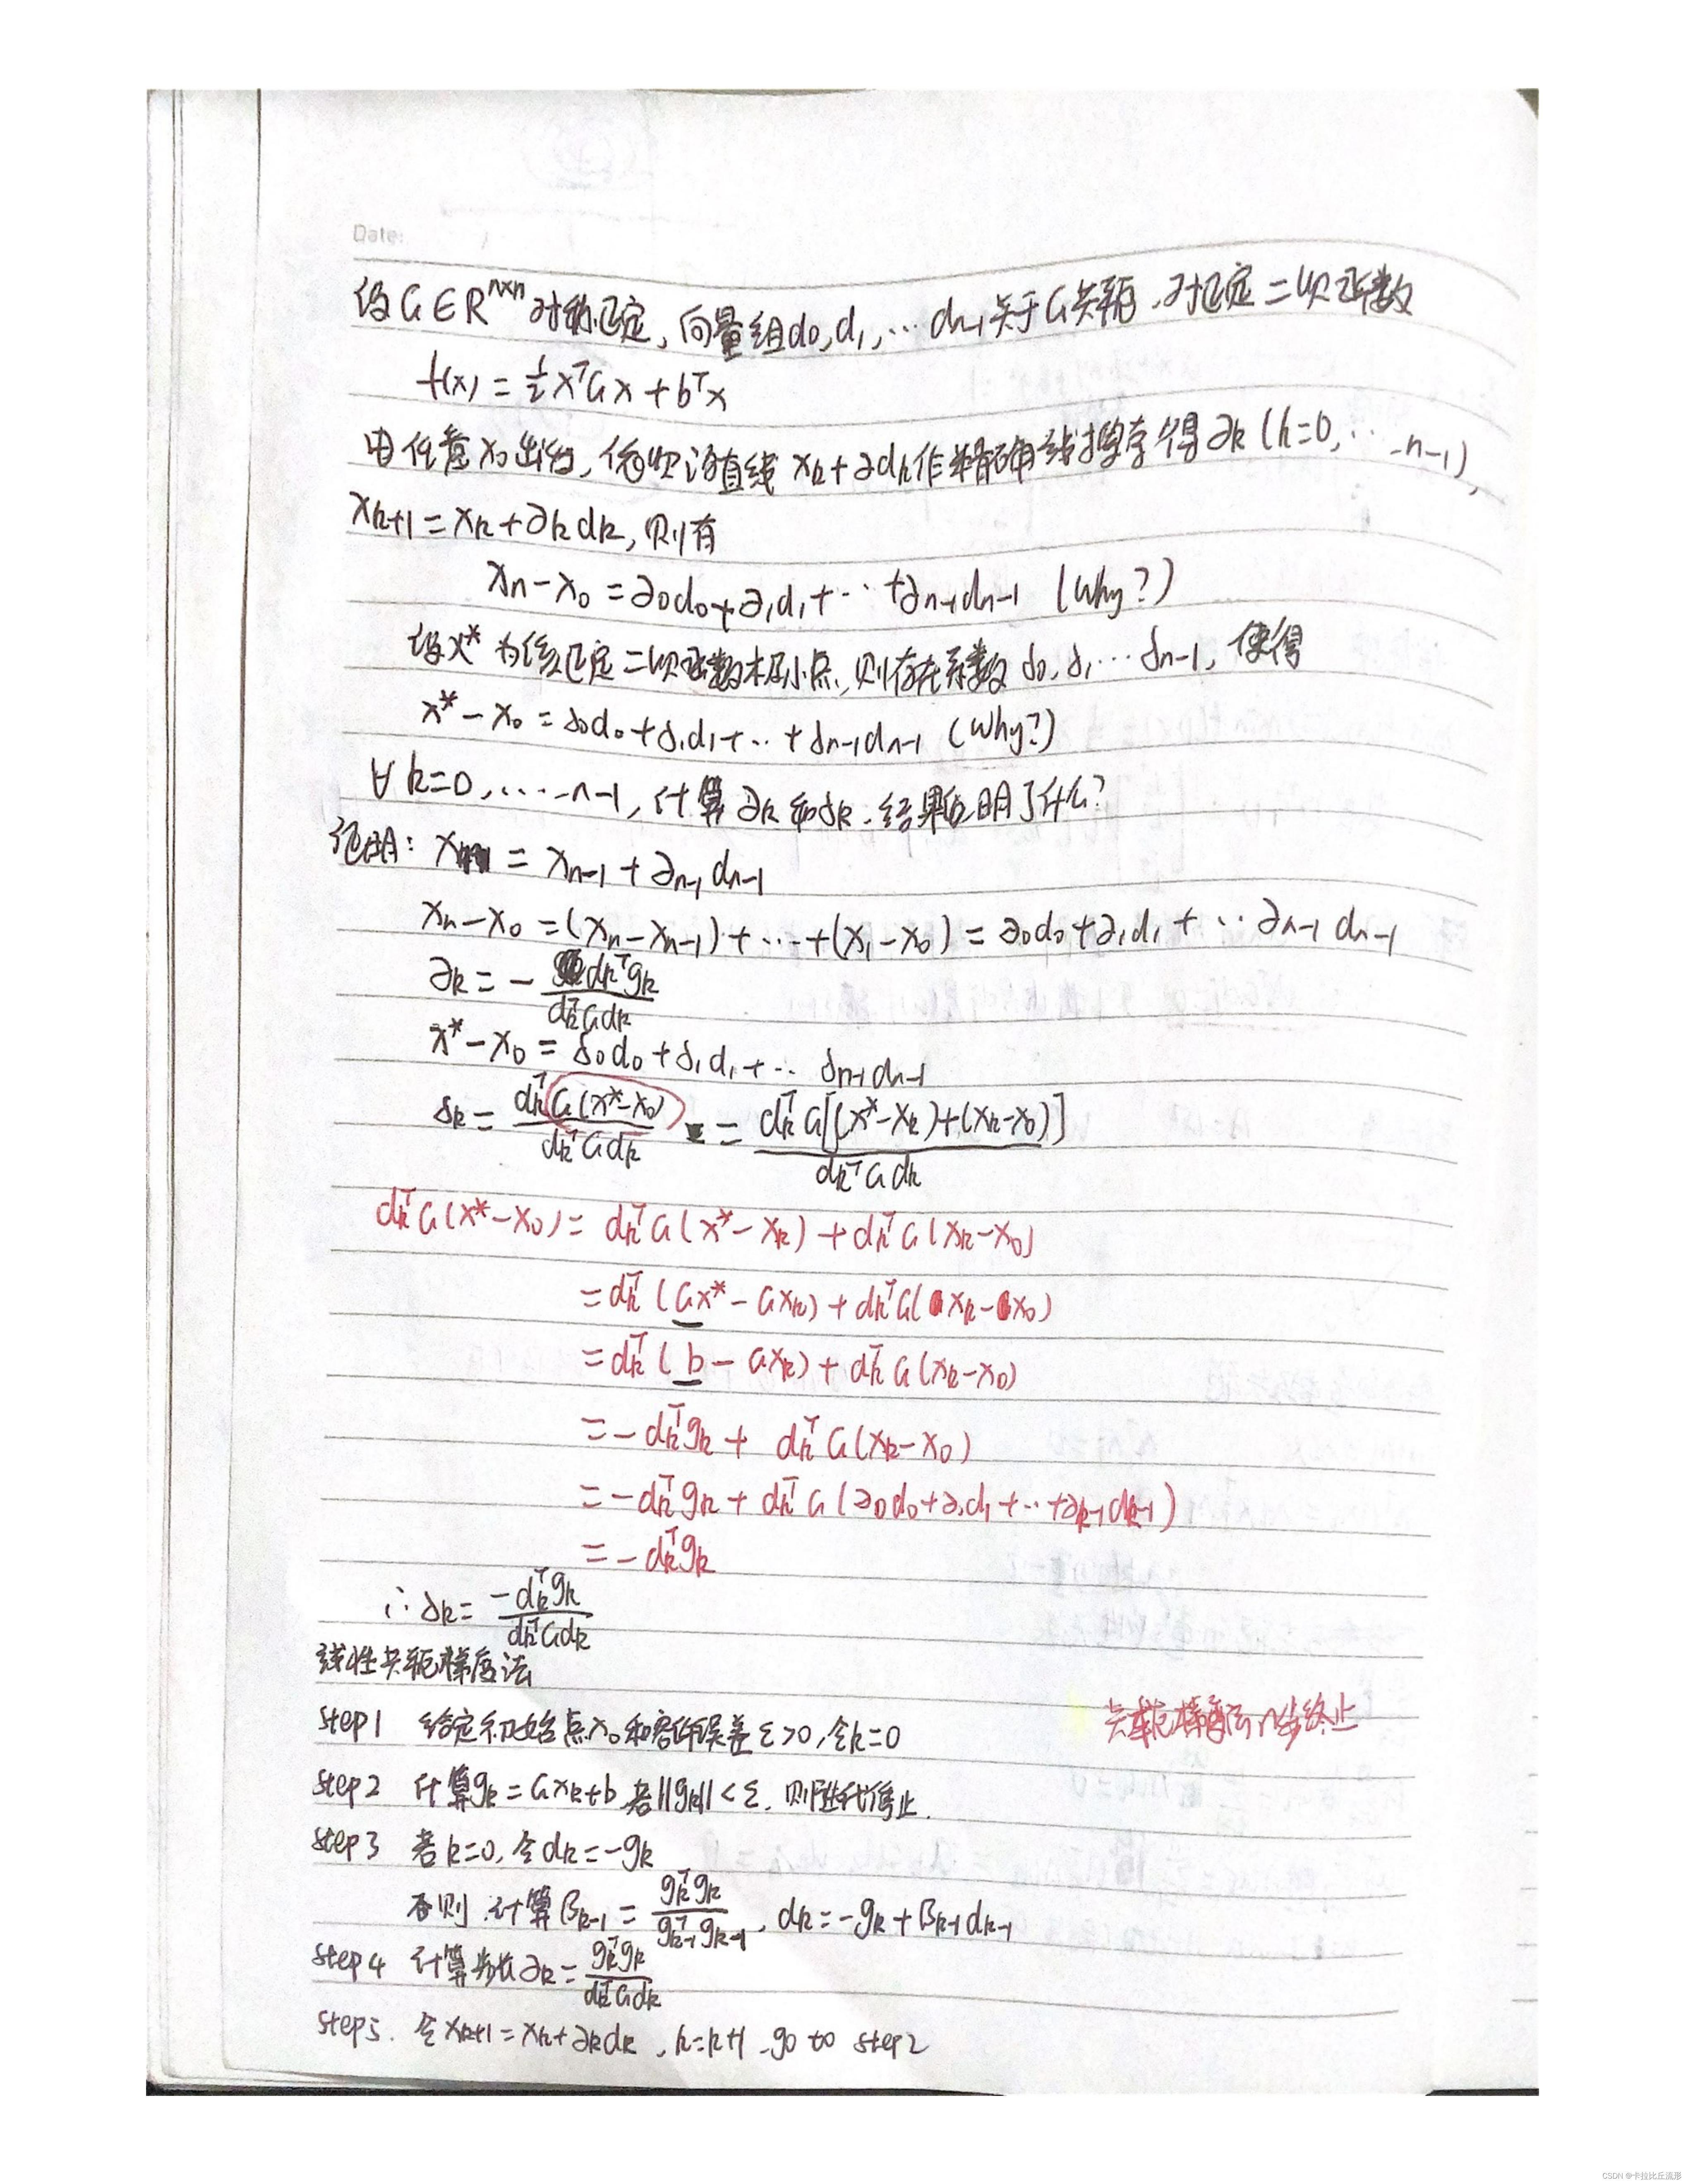 Date:
设G∈R^{n×n}对称正定,向量组d0,d1,…dn-1关于G共轭.对正定二次函数
f(x)=½x^TGx+b^Tx
由任意x0出发,依次沿直线xk+∂dk作精确线搜索得∂k(k=0,…,n-1),
xk+1=xk+∂kdk,则有
xn-x0=∂0d0+∂1d1+…+∂n-1dn-1 (Why?)
设x*为该正定二次函数极小点,则存在系数δ0,δ1…δn-1,使得
x*-x0=δ0d0+δ1d1+…+δn-1dn-1 (Why?)
∀k=0,…n-1,计算∂k和δk.结果说明了什么?
证明: xn = xn-1+∂n-1dn-1
xn-x0=(xn-xn-1)+…+(x1-x0)=∂0d0+∂1d1+…∂n-1dn-1
∂k=-\frac{dk^Tgk}{dk^TGdk}
x*-x0=δ0d0+δ1d1+…δn-1dn-1
δk=\frac{dk^TG(x*-x0)}{dk^TGdk}=\frac{dk^TG[(x*-xk)+(xk-x0)]}{dk^TGdk}
dk^TG(x*-x0)=dk^TG(x*-xk)+dk^TG(xk-x0)
=dk^T(Gx*-Gxk)+dk^TG(xk-x0)
=dk^T(b-Gxk)+dk^TG(xk-x0)
=-dk^Tgk+dk^TG(xk-x0)
=-dk^Tgk+dk^TG(∂0d0+∂1d1+…+∂k-1dk-1)
=-dk^Tgk
∴δk=\frac{-dk^Tgk}{dk^TGdk}
线性共轭梯度法
step1 给定初始点x0和容许误差ε>0,令k=0
共轭梯度法n步终止
step2 计算gk=Gxk+b,若||gk||<ε,则迭代停止.
step3 若k=0,令dk=-gk
否则,计算βk-1=\frac{gk^Tgk}{gk-1^Tgk-1},dk=-gk+βk-1dk-1
step4 计算步长∂k=\frac{gk^Tgk}{dk^TGdk}
step5.令xk+1=xk+∂kdk,k=k+1,go to step2
CSDN @卡拉比丘流形